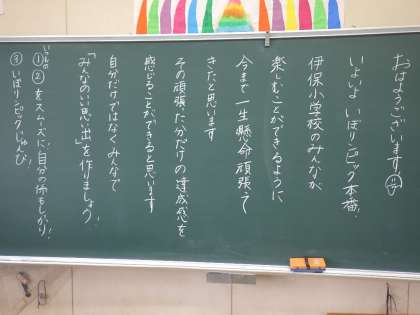 おはようございます
いよいよ いほリンピック本番!
伊保小学校のみんなが
楽しむことができるように
今まで一生懸命頑張って
きたと思います
その頑張た分だけの達成感を
感じることができると思います
自分だけではなくみんなで
「みんなのいい思い出」を作りましょう!
いつもの
①② をスムーズに! 自分の体もしっかり!
③ いほリンピックじゅんび